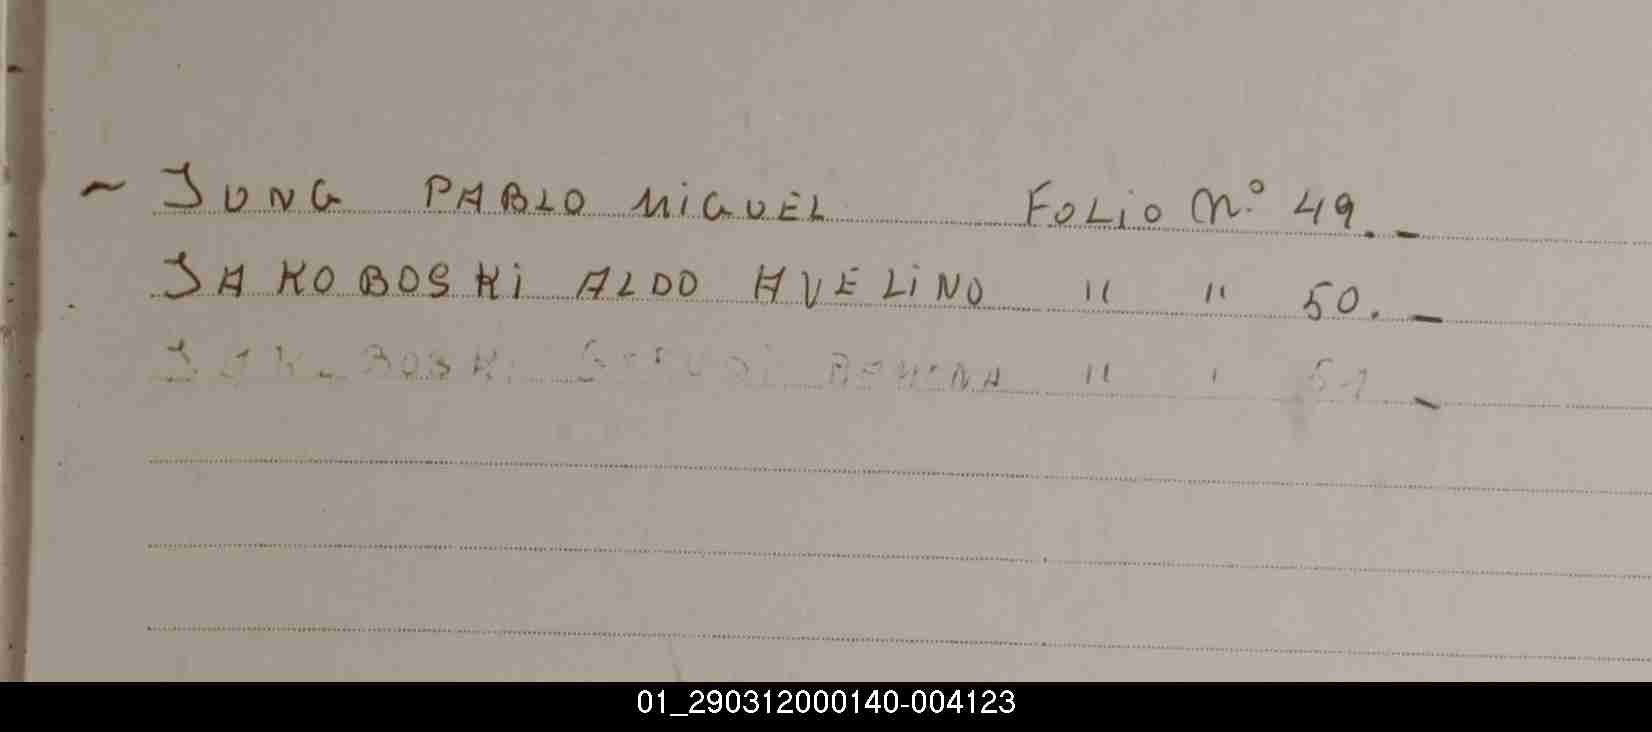 ~ JUNG PABLO MiGUEL FOLiO Nº 49.-
JAKOBOSKi ALDO AVELiNO " " 50.-
" 51 -
01_290312000140-004123